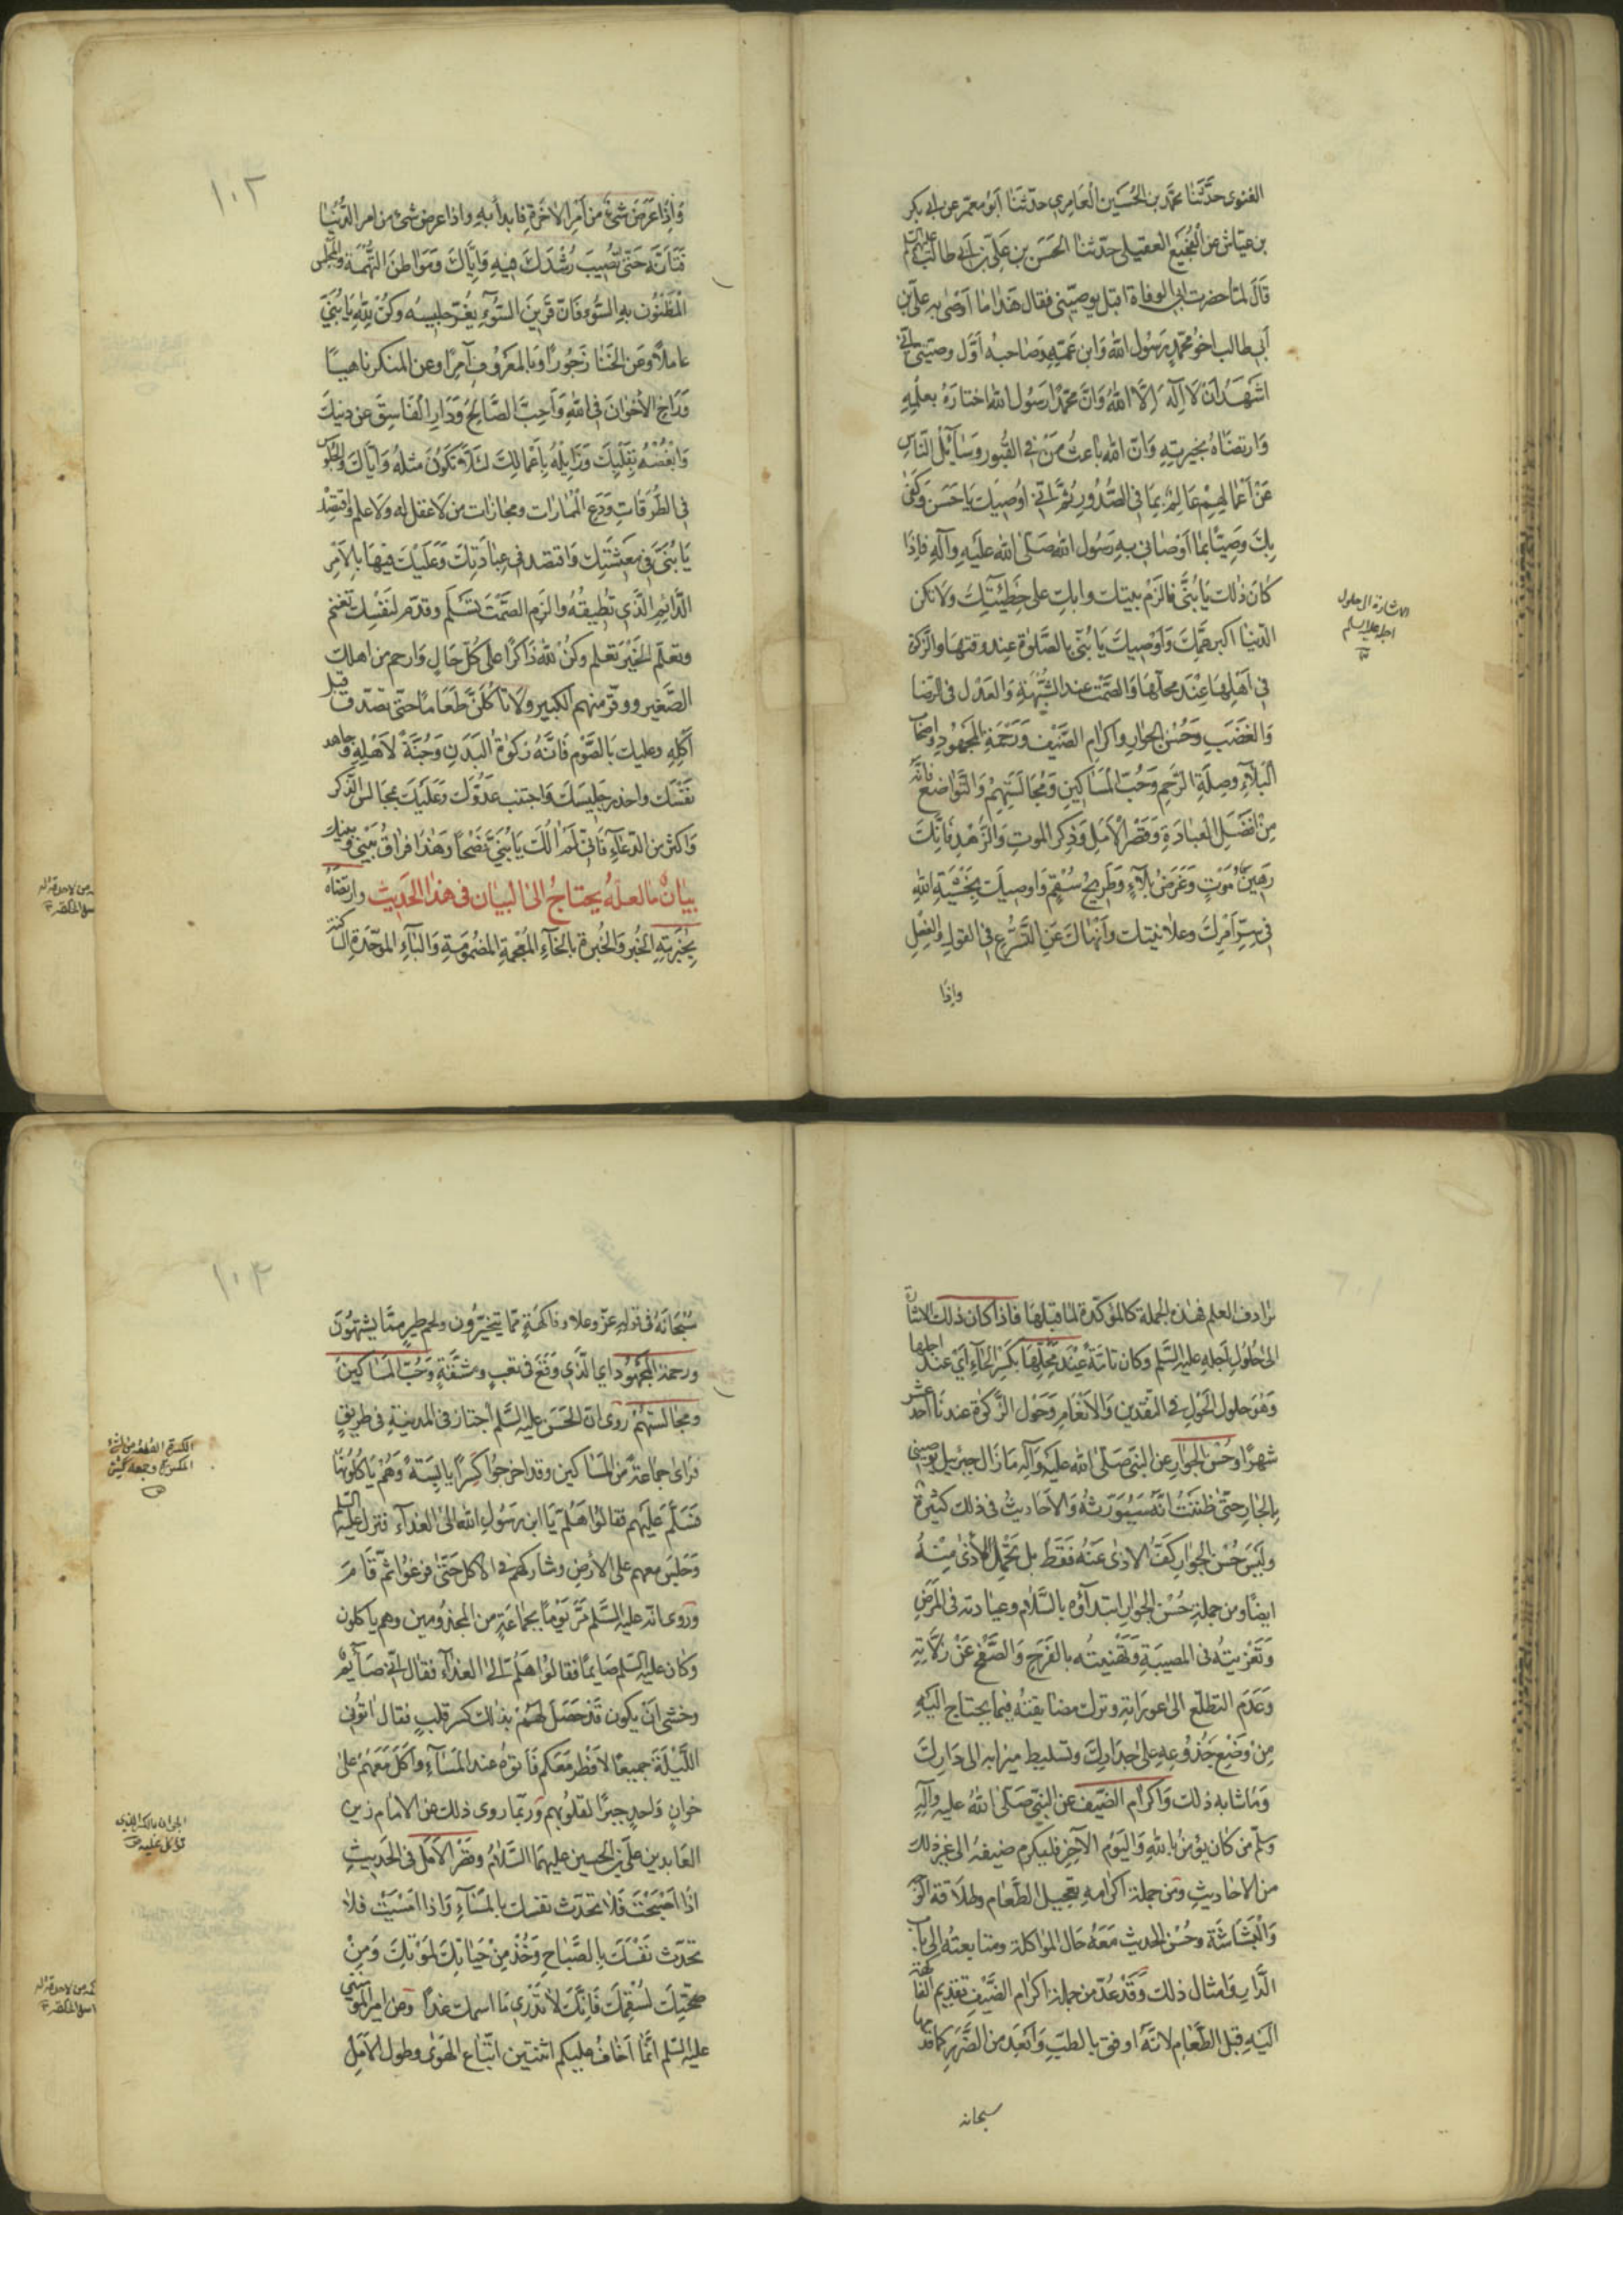 الغنوى حدَّثَنَا محمَّد بن الحُسَين العَامِرى حدّثنَا اَبُو معمّر عن ابى بكر
بن عيّاش عن الفُجَيع العقيلى حدّثنا الحَسَن بن عَلىّ بن اَبى طالب عليهم السّلم
قالَ لمّا حضرت ابى الوفاة اقبل يوصيّنى فقال هَذا ما اَوصٰى به علىّ بن
اَبى طالب اخو محمّدٍ رَسُول الله وَابن عَمّهِ وَصَاحبه اَوّل وصيّتى انّى
اشهَدُ اَنْ لا اِلٰه اِلّا الله وَانَّ محمّدًا رَسُول الله اختارَهُ بعلمِهِ
وَارتضَاهُ بخيرتِهِ وَانّ الله باعث مَنْ فى القُبور وَسَآئل النّاسِ
عَنْ اَعمالِهِمْ عَالِمٌ بمَا فى الصّدُور ثُمَّ اِنّى اُوصِيك يَا حَسَن وَكفٰى
بِكَ وَصِيًّا بمَا اَوْصَانى بِه رَسُول الله صَلّى الله عَلَيهِ وَآلِهِ فَاِذَا
كانَ ذٰلك يَا بُنَىَّ فالزَمْ بيتك وابكِ على خَطِيئتِكَ وَلا تكن
الدّنيا اكبر همِّكَ وَاُوصِيكَ يَا بُنَىّ بالصَّلٰوة عِند وقتهَا والزّكوة
فى اَهْلِهَا عِنْدَ محلّهَا وَالصَّمْت عند الشُّبْهَةِ وَالعَدْل فى الرّضا
وَالغَضَبِ وَحُسْنِ الجوَارِ وَاكرامِ الضّيْف وَرَحْمَةِ المجهُودِ وَاصحَاب
البَلآءِ وصِلَةِ الرَّحِمِ وَحُبّ المسَاكينِ وَمُجَالسَتِهِمْ وَالتّواضعِ فانّه
مِنْ اَفْضَلِ العبادَةِ وَقصْر الْاَمَلِ وَذِكر الموتِ وَالزُّهْدِ فَاِنّكَ
رَهِينُ مَوْتٍ وَغَرَضُ بَلآءٍ وَطَرِيحُ سُقْمٍ وَاوصِيكَ بخَشْيَةِ اللهِ
فى سِرِّ اَمْرِكَ وعلانيتك واَنْهَاكَ عَنِ التّسَرُّعِ فى القولِ وَالفعْلِ
واِذَا
الاشارة الى حلول
اجله عليه السلم
١٠٢
وَاِذَا عَرَضَ شَىْءٌ مِن اَمْرِ الآخرَةِ فَابدأ بهِ واذا عرض شىْءٌ من امر الدُّنيَا
فَتأنّه حَتّى تُصيبَ رُشْدَكَ فيهِ وَاِيّاكَ وَمَوَاطنَ التُّهَمَة وَالمجْلس
المظنُون به السُّوء فَانّ قَرينَ السُّوءِ يَغُرّ جليسه وكنْ لِلّهِ يَا بُنَىّ
عاملًا وعَن الخنَا زَجُورًا وَبالمَعرُوفِ آمِرًا وعن المنكر ناهيًا
وَواخِ الاخوَانَ فى الله وَاحِبَّ الصّالحَ وَدَارِ الفَاسِقَ عن دِينِكَ
وَابْغَضْهُ بِقَلْبِكَ وَزَايِلْهُ بِاَعْمالِكَ لئلّا تكونَ مثلهُ وَايّاكَ وَالجُلُوسَ
فى الطُّرُقاتِ وَدَعِ المُمَارَات ومجازات من لا عقل له وَلا علم وَاقتصِدْ
يَا بُنَىَّ فى مَعيشَتِك وَاقتصد فى عِبادَتِكَ وَعَلَيْكَ فيهَا بِالاَمْرِ
الدَّائم الّذى تُطِيقُهُ والزَمِ الصَّمْتَ تَسْلَم وقدّم لنَفْسِكَ تغنم
وتعلّم الخيْرَ تعلم وكنْ لله ذاكرًا عَلى كلّ حَالٍ وَارحم من اهلك
الصّغير ووقّر منهم الكبير ولا تأكلَنَّ طَعَامًا حتّى تصدّق قبل
اَكْلِهِ وعليك بَالصّوْم فَانَّه زكوةُ البَدَنِ وَجُنّةٌ لاَهْلِهِ وَجاهد
نَفْسَك واحذر جَليسَكَ وَاجتنب عَدُوَّك وَعَلَيْكَ بمجالس الذّكر
وَاكثر من الدّعآءِ فَانّى لَمْ اٰلُكَ يَا بُنَىَّ نُصْحًا وَهٰذا فِراقُ بَيْنى وَبينك
بيَانُ مَا لعَلّهُ يحتاجُ الى البيَان فى هذا الحَديث وارتضَاهُ
بِخِبْرَتِهِ الخُبر وَالخُبرة بالخآءِ المُعْجمةِ المضمومَةِ وَالبَآءِ الموحّدة السّاكنة
ترادف العلم فهذه الجملة كالمؤكّدة لما قبلها فَاذا كان ذلك الاشارة
الىٰ حُلُولِ اَجَلِهِ عليه السّلم وكان تامّة عِنْدَ مَحِلِّهَا بكسر الحآءِ اَىْ عند اجلها
وَهُوَ حلول الحَوْلِ فى النّقدين وَالاَنْعَامِ وَحَول الزّكوة عندنا احد عشر
شهرًا وَحُسْن الجوَارِ عن النّبىّ صَلّى الله عَلَيه وَآلِهِ مَا زَال جبريل يوصينى
بِالجارِ حتّى ظنَنتُ انّه سَيُوَرّثهُ وَالاَحَاديثُ فى ذلك كثيرة
ولَيسَ حُسْن الجوارِ كفّ الاَذٰى عَنْهُ فَقَط بل تحمّل الاذٰى مِنْهُ
ايضًا ومن جملةِ حُسْن الجوار ابتدآؤه بالسَّلام وعيادته فى المَرَضِ
وَتَعْزيتُه فى المصيبَةِ وَتَهْنيتُه بالفَرَحِ وَالصّفْح عَنْ زَلّاتِهِ
وَعَدَم التطلّع الىٰ عورَاتِهِ وترك مضايقتهُ فيما يحتاج اليْهِ
مِنْ وَضْعِ جُذُوعِهِ عَلىٰ جدَارِكَ وتسليط ميزابه الى دَارِكَ
وَمَا شابه ذلك وَاكرام الضّيف عن النّبىّ صَلّى اللهُ عليهِ وآلهِ
وسلّم من كان يؤمنُ بالله وَاليَوم الآخِرِ فليكرم ضيفهُ الى غير ذلك
من الاحاديثِ ومن جملةِ اكرامِهِ تعجيل الطَّعَام وطَلاقة الوَجْه
وَالبَشَاشَة وحُسْن الحديث مَعَهُ حَال المؤاكلة ومتابعتهُ الى باب
الدّار وَامثال ذلك وَقَدْ عُدّ من جملة اكرام الضّيْفِ تقديم الفاكهة
اليْهِ قبلَ الطَّعَامِ لانّهُ اوفق بالطبّ وَاَبْعَد من الضّرر كما قدّمها
سبحانه
١٠٣
سُبْحَانَهُ فى قولهِ عَزّ وعلا وفاكهَةٍ ممّا يتخيّرون ولحم طيرٍ ممّا يشتهُونَ
ورحمة المَجْهُود اي الّذى وقعَ فى تعبٍ ومشقّةٍ وحُبّ المسَاكين
ومجالسَتهمْ روى انّ الحَسَن عليه السّلم اجتاز فى المدينةِ فى طريقٍ
فرأى جماعةً من المسَاكين وقد اخرجوا كِسَرًا يابسَةً وَهُمْ يَاكلُونَهَا
فسَلّم عَليهم فقالُوا هَلُمّ يَا ابن رَسُولِ الله الىٰ الغدآء فنزل عليه السّلم
وَجَلسَ معهم عَلى الاَرضِ وشاركهُمْ فى الاكل حَتّى فرغُوا ثمّ قامَ
وروى انّه عليه السّلم مَرَّ يَوْمًا بجماعَةٍ من المجذُومين وهم ياكلون
وكان عليه السّلم صايمًا فقالُوا هَلُمّ الىٰ الغدآء فقال اِنّى صَآيم
وخشى اَنْ يكون قَدْ حَصَل لهُمْ بذلك كسر قلبٍ فقال ائتُونى
اللّيْلَةَ جميعًا لاَفْطر مَعَكم فَاتوهُ عند المسَآءِ وَاكَلَ مَعَهُمْ على
خوانٍ وَاحدٍ جبرًا لقلُوبِهم وَربّما روى ذلك عن الامام زين
العَابدين عَلىّ بن الحُسين عليهمَا السّلامُ وقصْر الامَل فى الحَديثِ
اذَا اَصْبَحْتَ فَلَا تحَدّث نفسك بالمَسَآءِ وَاذا امْسَيْتَ فلا
تحدّث نَفْسَكَ بِالصّبَاح وَخُذْ مِنْ حَيَاتِكَ لمَوْتِكَ وَمِنْ
صحّتِكَ لسُقمِكَ فَاِنّكَ لاَ تَدْرى مَا اسمك غدًا وَعَن امير المؤمنين
عليه السّلم اِنّمَا اَخَافُ عليكم اثنتين اتّبَاع الهَوىٰ وطُول الاَمَلِ
الكسرة القطعة من الشئ
المكسور وجمعه كسر
الخوان بالكسر الذى
يؤكل عليه